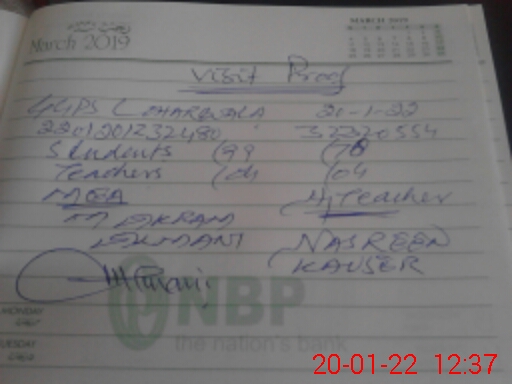 March 2019
MARCH 2019
Visit Proof
GGPS LOHARWALA 20-1-22
2201201232480 32320554
Students (99 (78
Teachers (04 (04
MEA H/Teacher
M AKRAM
LQMANI NASREEN
KAUSER
NBP
the nation's bank
MONDAY
TUESDAY
20-01-22 12:37